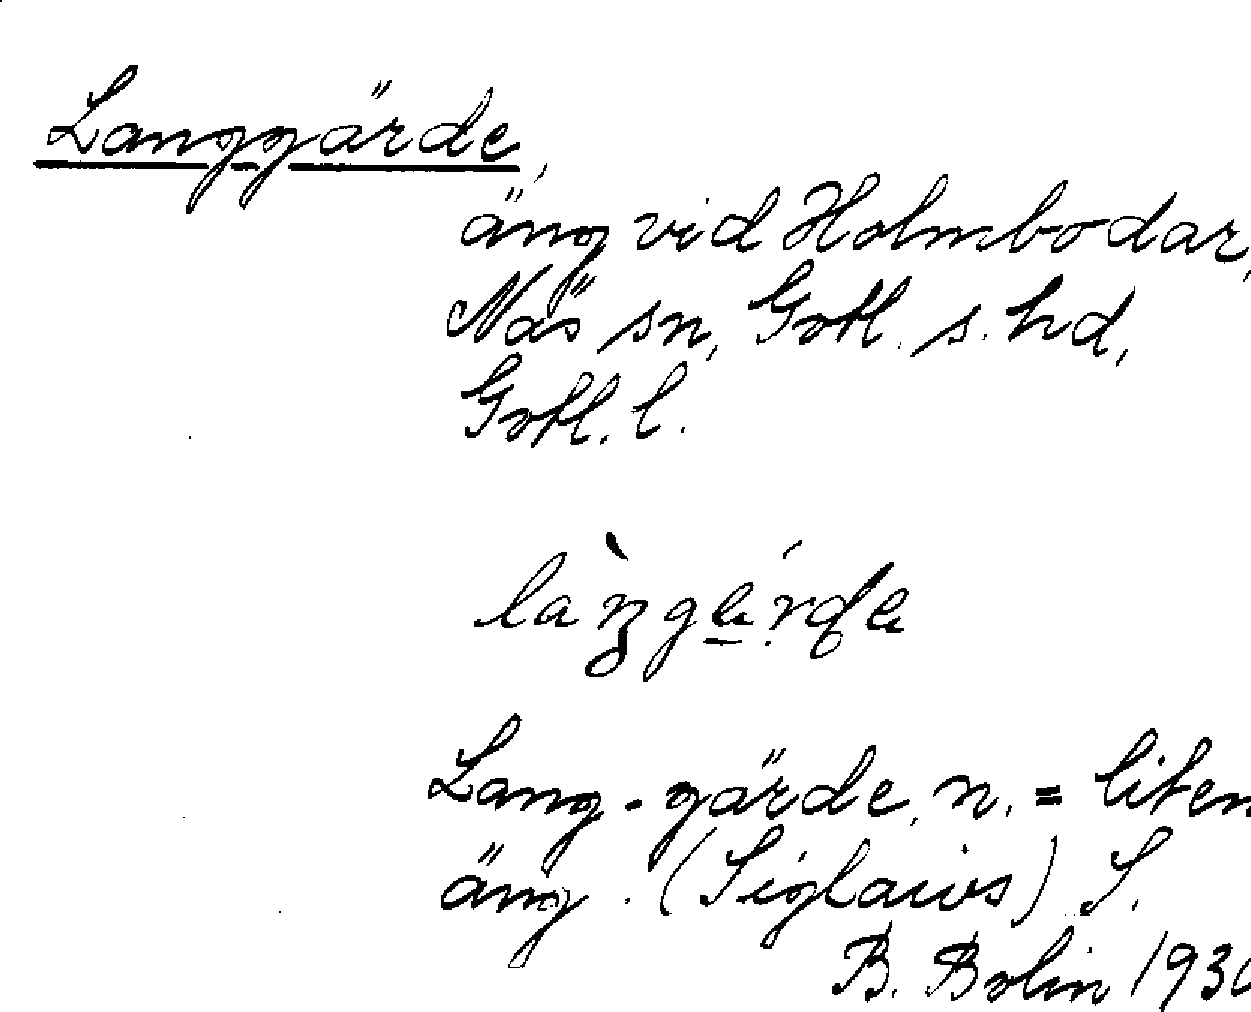 Langgärde,
äng vid Holmbodar,
Näs sn, Gotl. s. hd,
Gotl. l.
Lang-gärde, n. = liten
äng. (Siglaivs) S.
B. Bolin 193